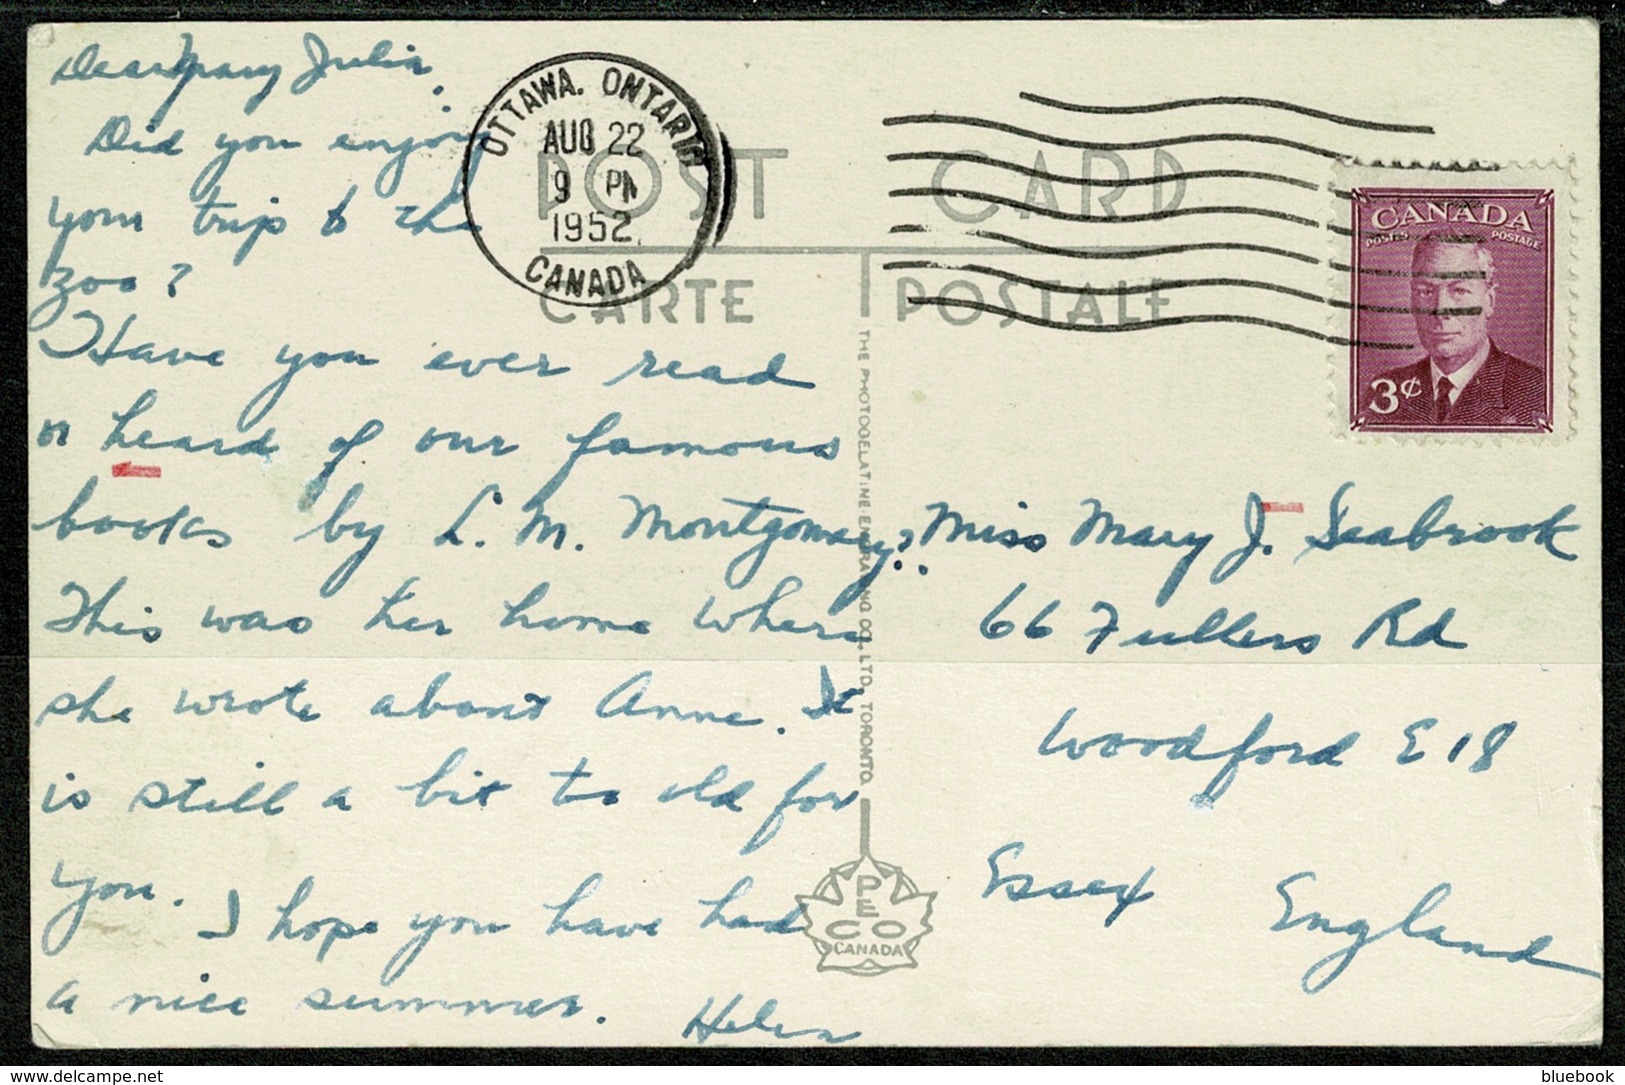 Dear Mary Julia,
Did you enjoy
your trip to the
zoo?
Have you ever read
or heard of our famous
books by L. M. Montgomery?
This was her home where
she wrote about Anne. It
is still a bit to old for
you. I hope you have had
a nice summer. Helen
OTTAWA. ONTARIO
AUG 22
9 PM
1952
CANADA
POST CARD
CARTE POSTALE
CANADA
POSTES POSTAGE
3¢
THE PHOTOGELATINE ENGRAVING CO., LTD. TORONTO
Miss Mary J. Seabrook
66 Fullers Rd
Woodford E 18
Essex England
PECO
CANADA
© delcampe.net
bluebook